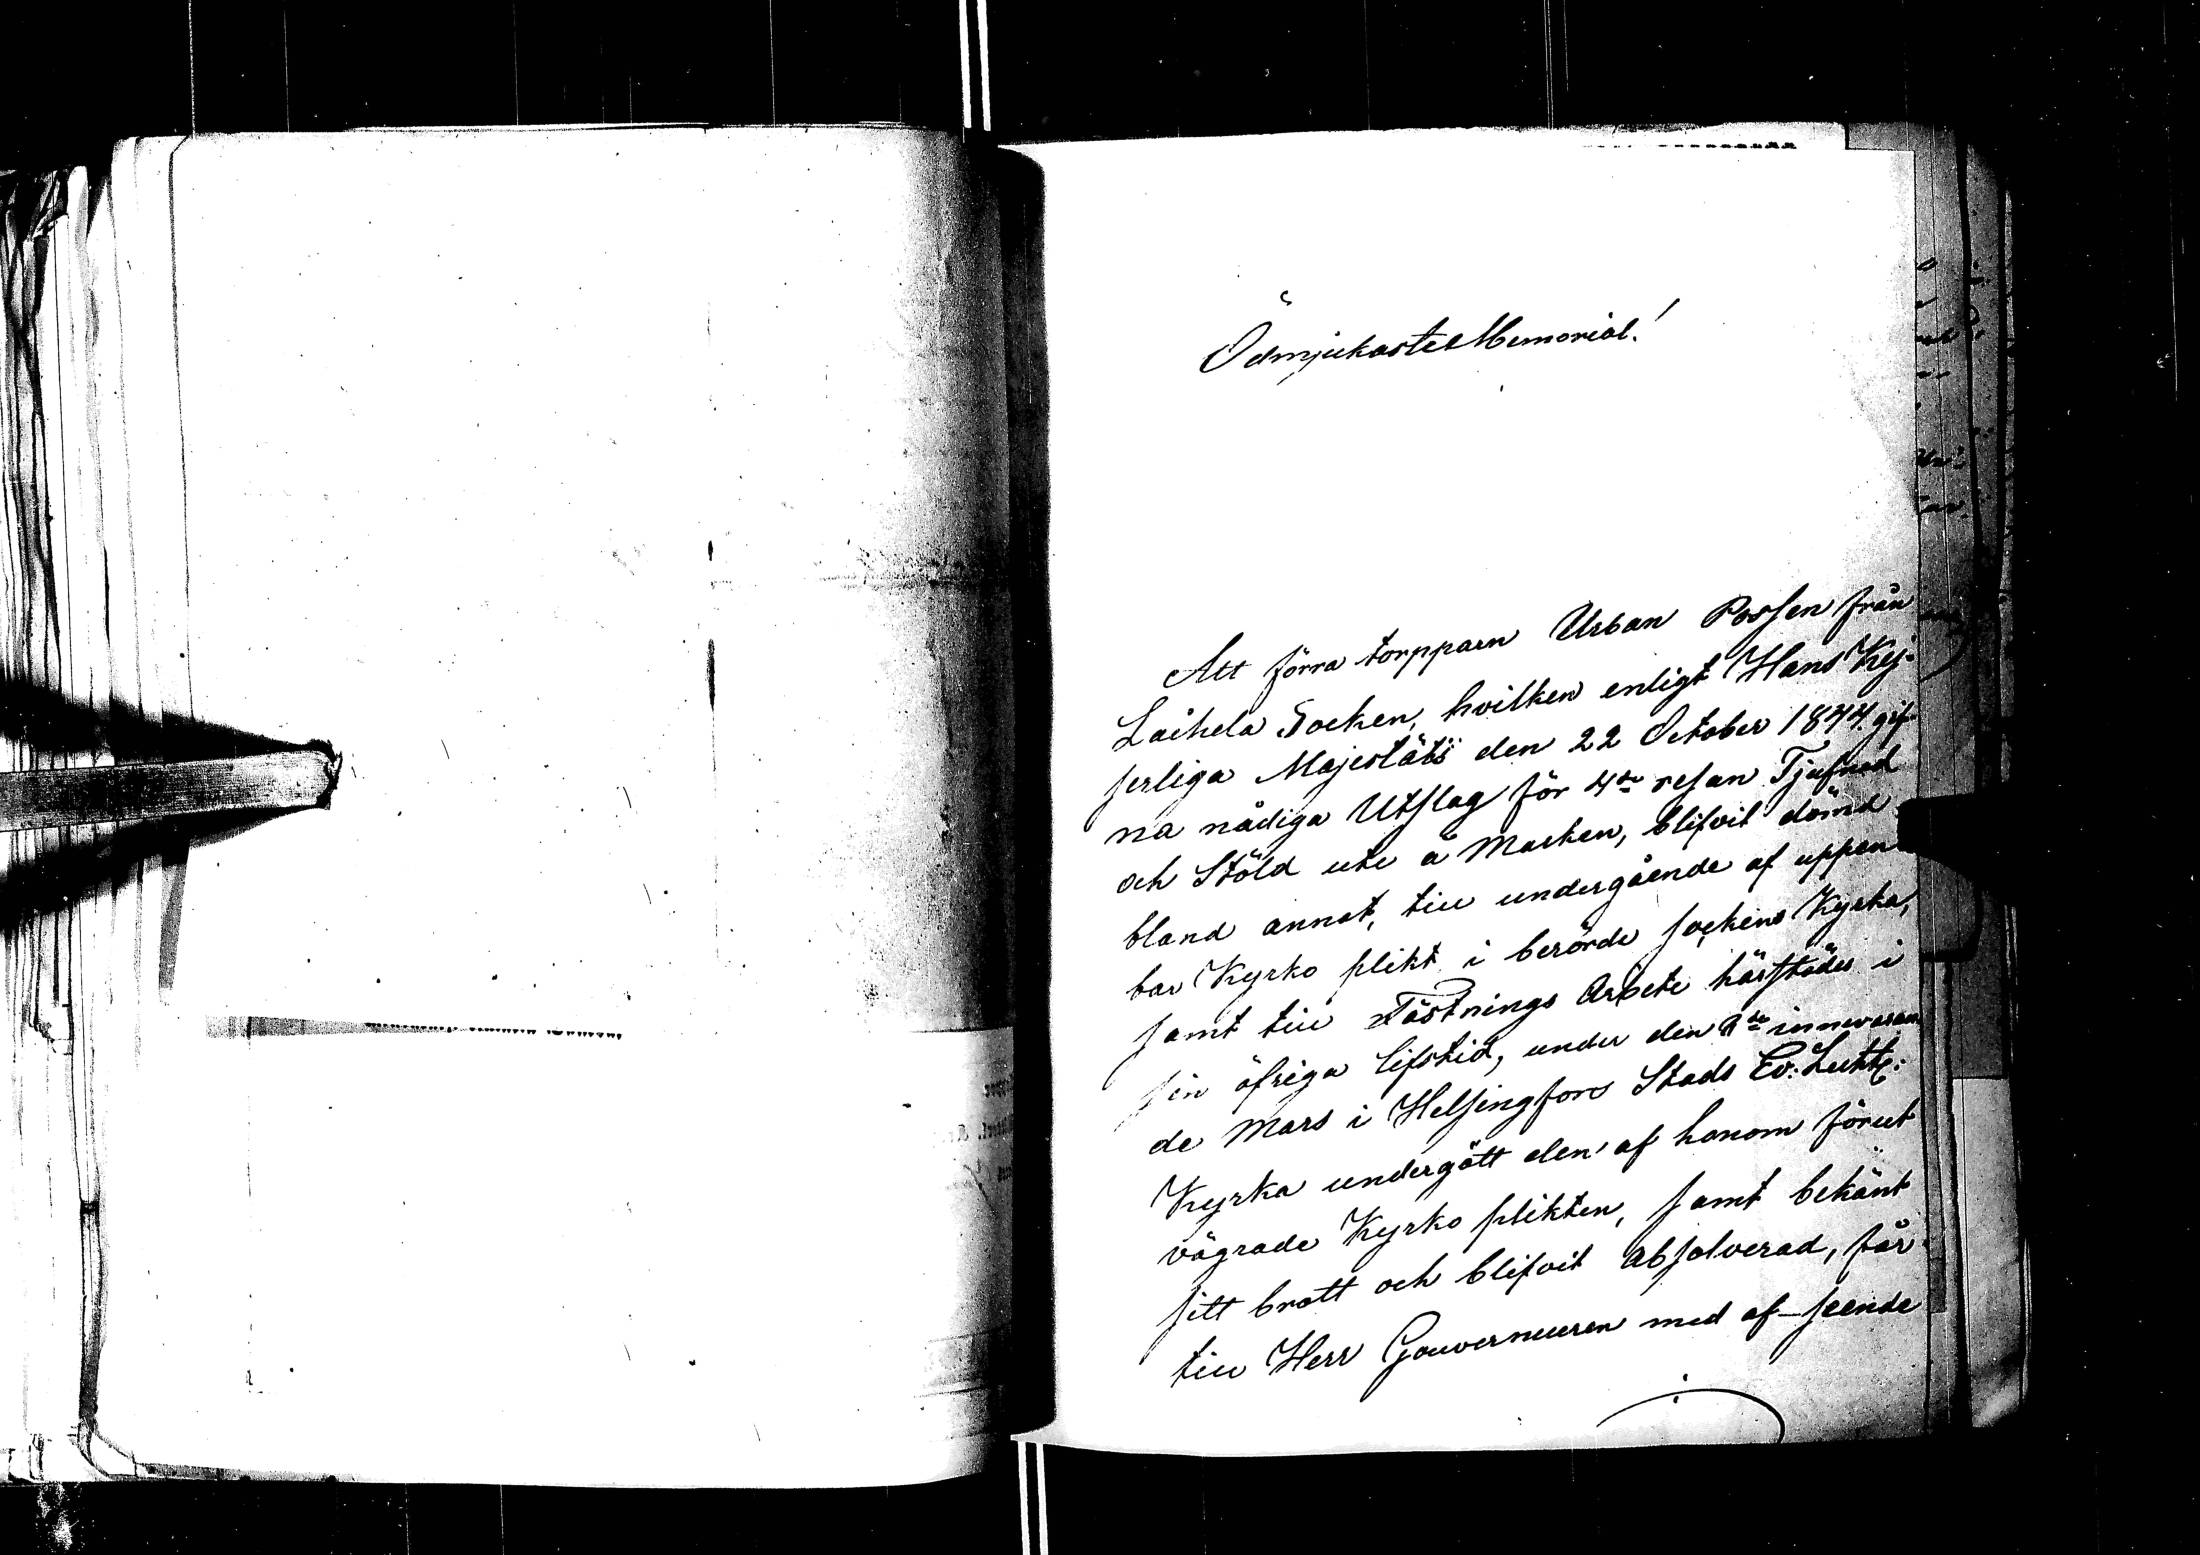 Ödmjukaste Memorial!
Att förra torpparn Urban Possen från
Laihela Socken, hvilken enligt Hans Kej-
serliga Majestäts den 22 October 1844 gif-
na nådiga Utslag för 4de resan Tjufnad
och Stöld ute å Marken, blifvit dömd
bland annat, till undergående af uppen
bar Kyrko plikt i berörde sockens Kyrka,
samt till Fästnings Arbete härstädes i
sin öfriga lifstid, under den 9de innevaran
de Mars i Helsingfors Stads Ev: Luth:
Kyrka undergått den af honom förut
vägrade Kyrko plikten, samt bekänt
sitt brott och blifvit absolverad, får
till Herr Gouverneuren med af-seende